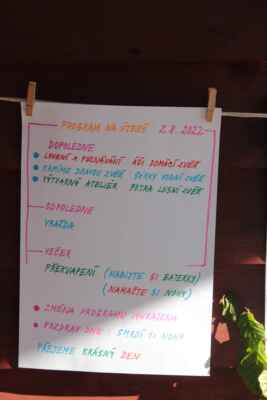 PROGRAM NA ÚTERÝ 2.8.2022
DOPOLEDNE
LOVENÍ A POZNÁVÁNÍ ÁJI DOMÁCÍ ZVĚŘ
KRMÍME DRAVOU ZVĚŘ VODNÍ ZVĚŘ
VÝTVARNÝ ATELIER PETRA LESNÍ ZVĚŘ
ODPOLEDNE
VRAŽDA
VEČER
PŘEKVAPENÍ (NABIJTE SI BATERKY)
(NAMAŽTE SI NOHY)
ZMĚNA PROGRAMU VYHRAZENA
POZDRAV DNE: SMRDÍ TI NOHY
PŘEJEME KRÁSNÝ DEN